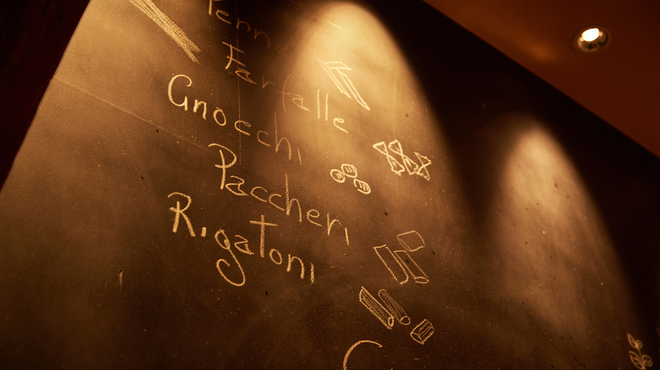 Penne
Farfalle
Gnocchi
Paccheri
Rigatoni